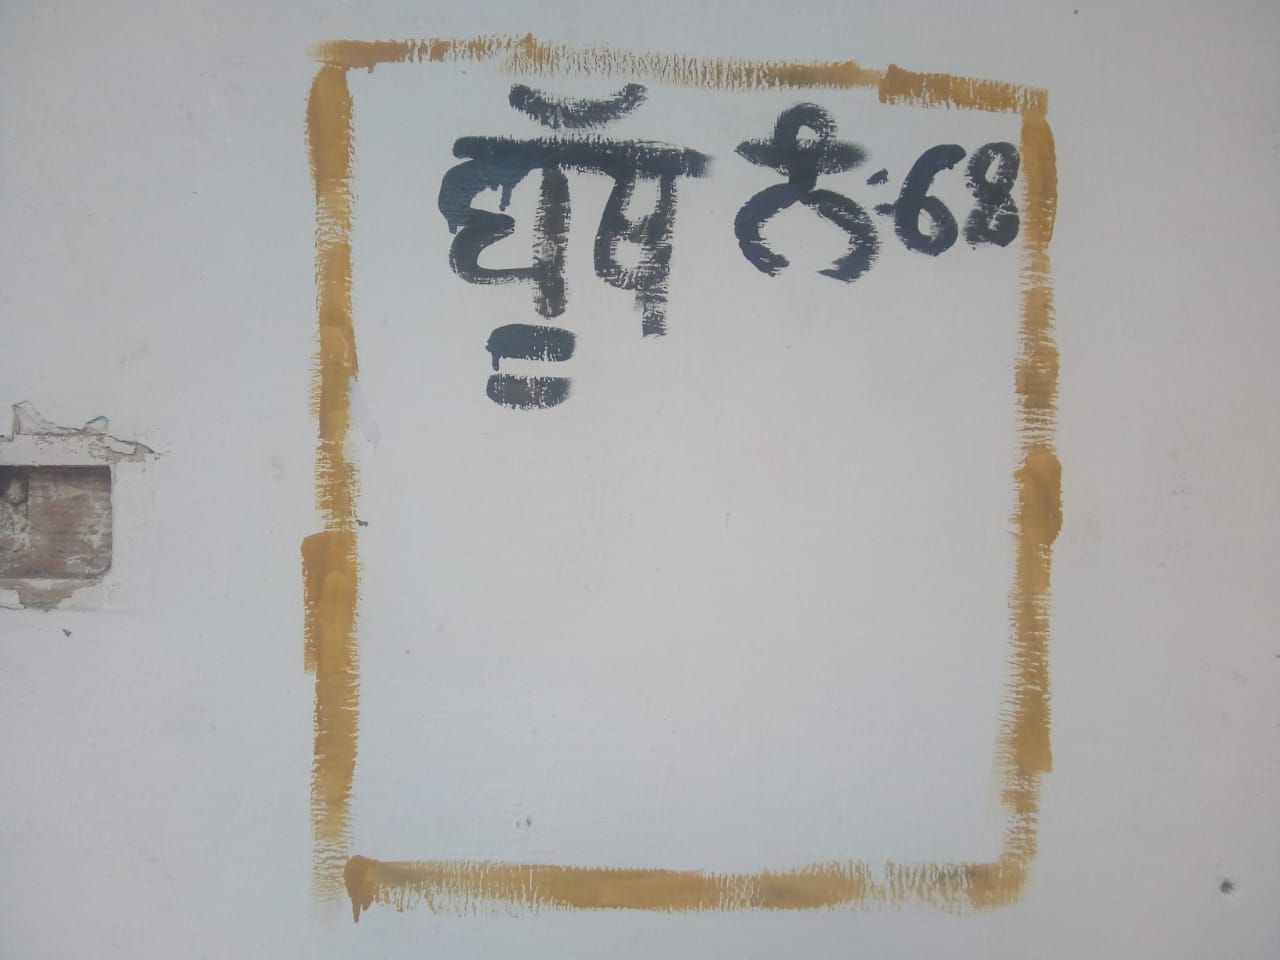 ਬੂੱਥ ਨੰ:68